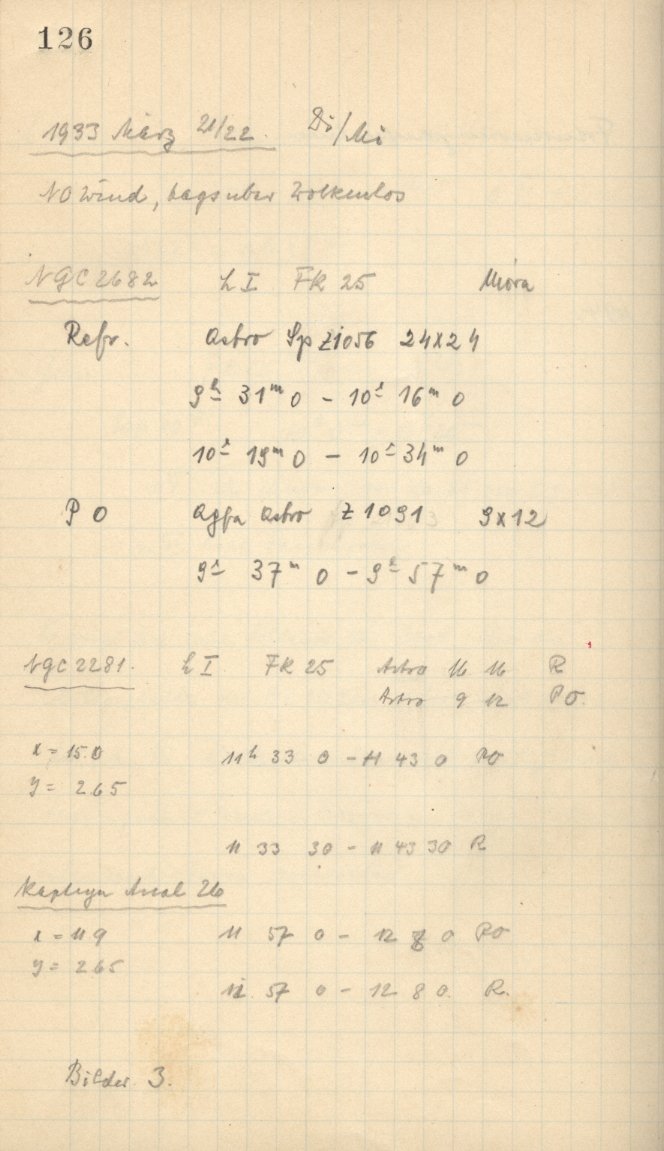 126
1933 März 21/22. Di/Mi
NO Wind, tagsüber Wolkenlos
NGC 2682 L I FK 25
Refr. Astro Sp Z1056 24x24
9h 31m 0 - 10h 16m 0
10h 19m 0 - 10h 34m 0
P O Agfa Astro Z 1091 9x12
9h 37m 0 - 9h 57m 0
NGC 2281. L I FK 25 Astro 16 16 R
Astro 9 12 PO.
x = 15.0 11h 33 0 - 11 43 0 PO
y = 265
11 33 30 - 11 43 30 R
Kapteyn Areal 26
x = 119 11 57 0 - 12 8 0 PO
y = 265
11. 57 0 - 12 8 0. R.
Bilder 3.